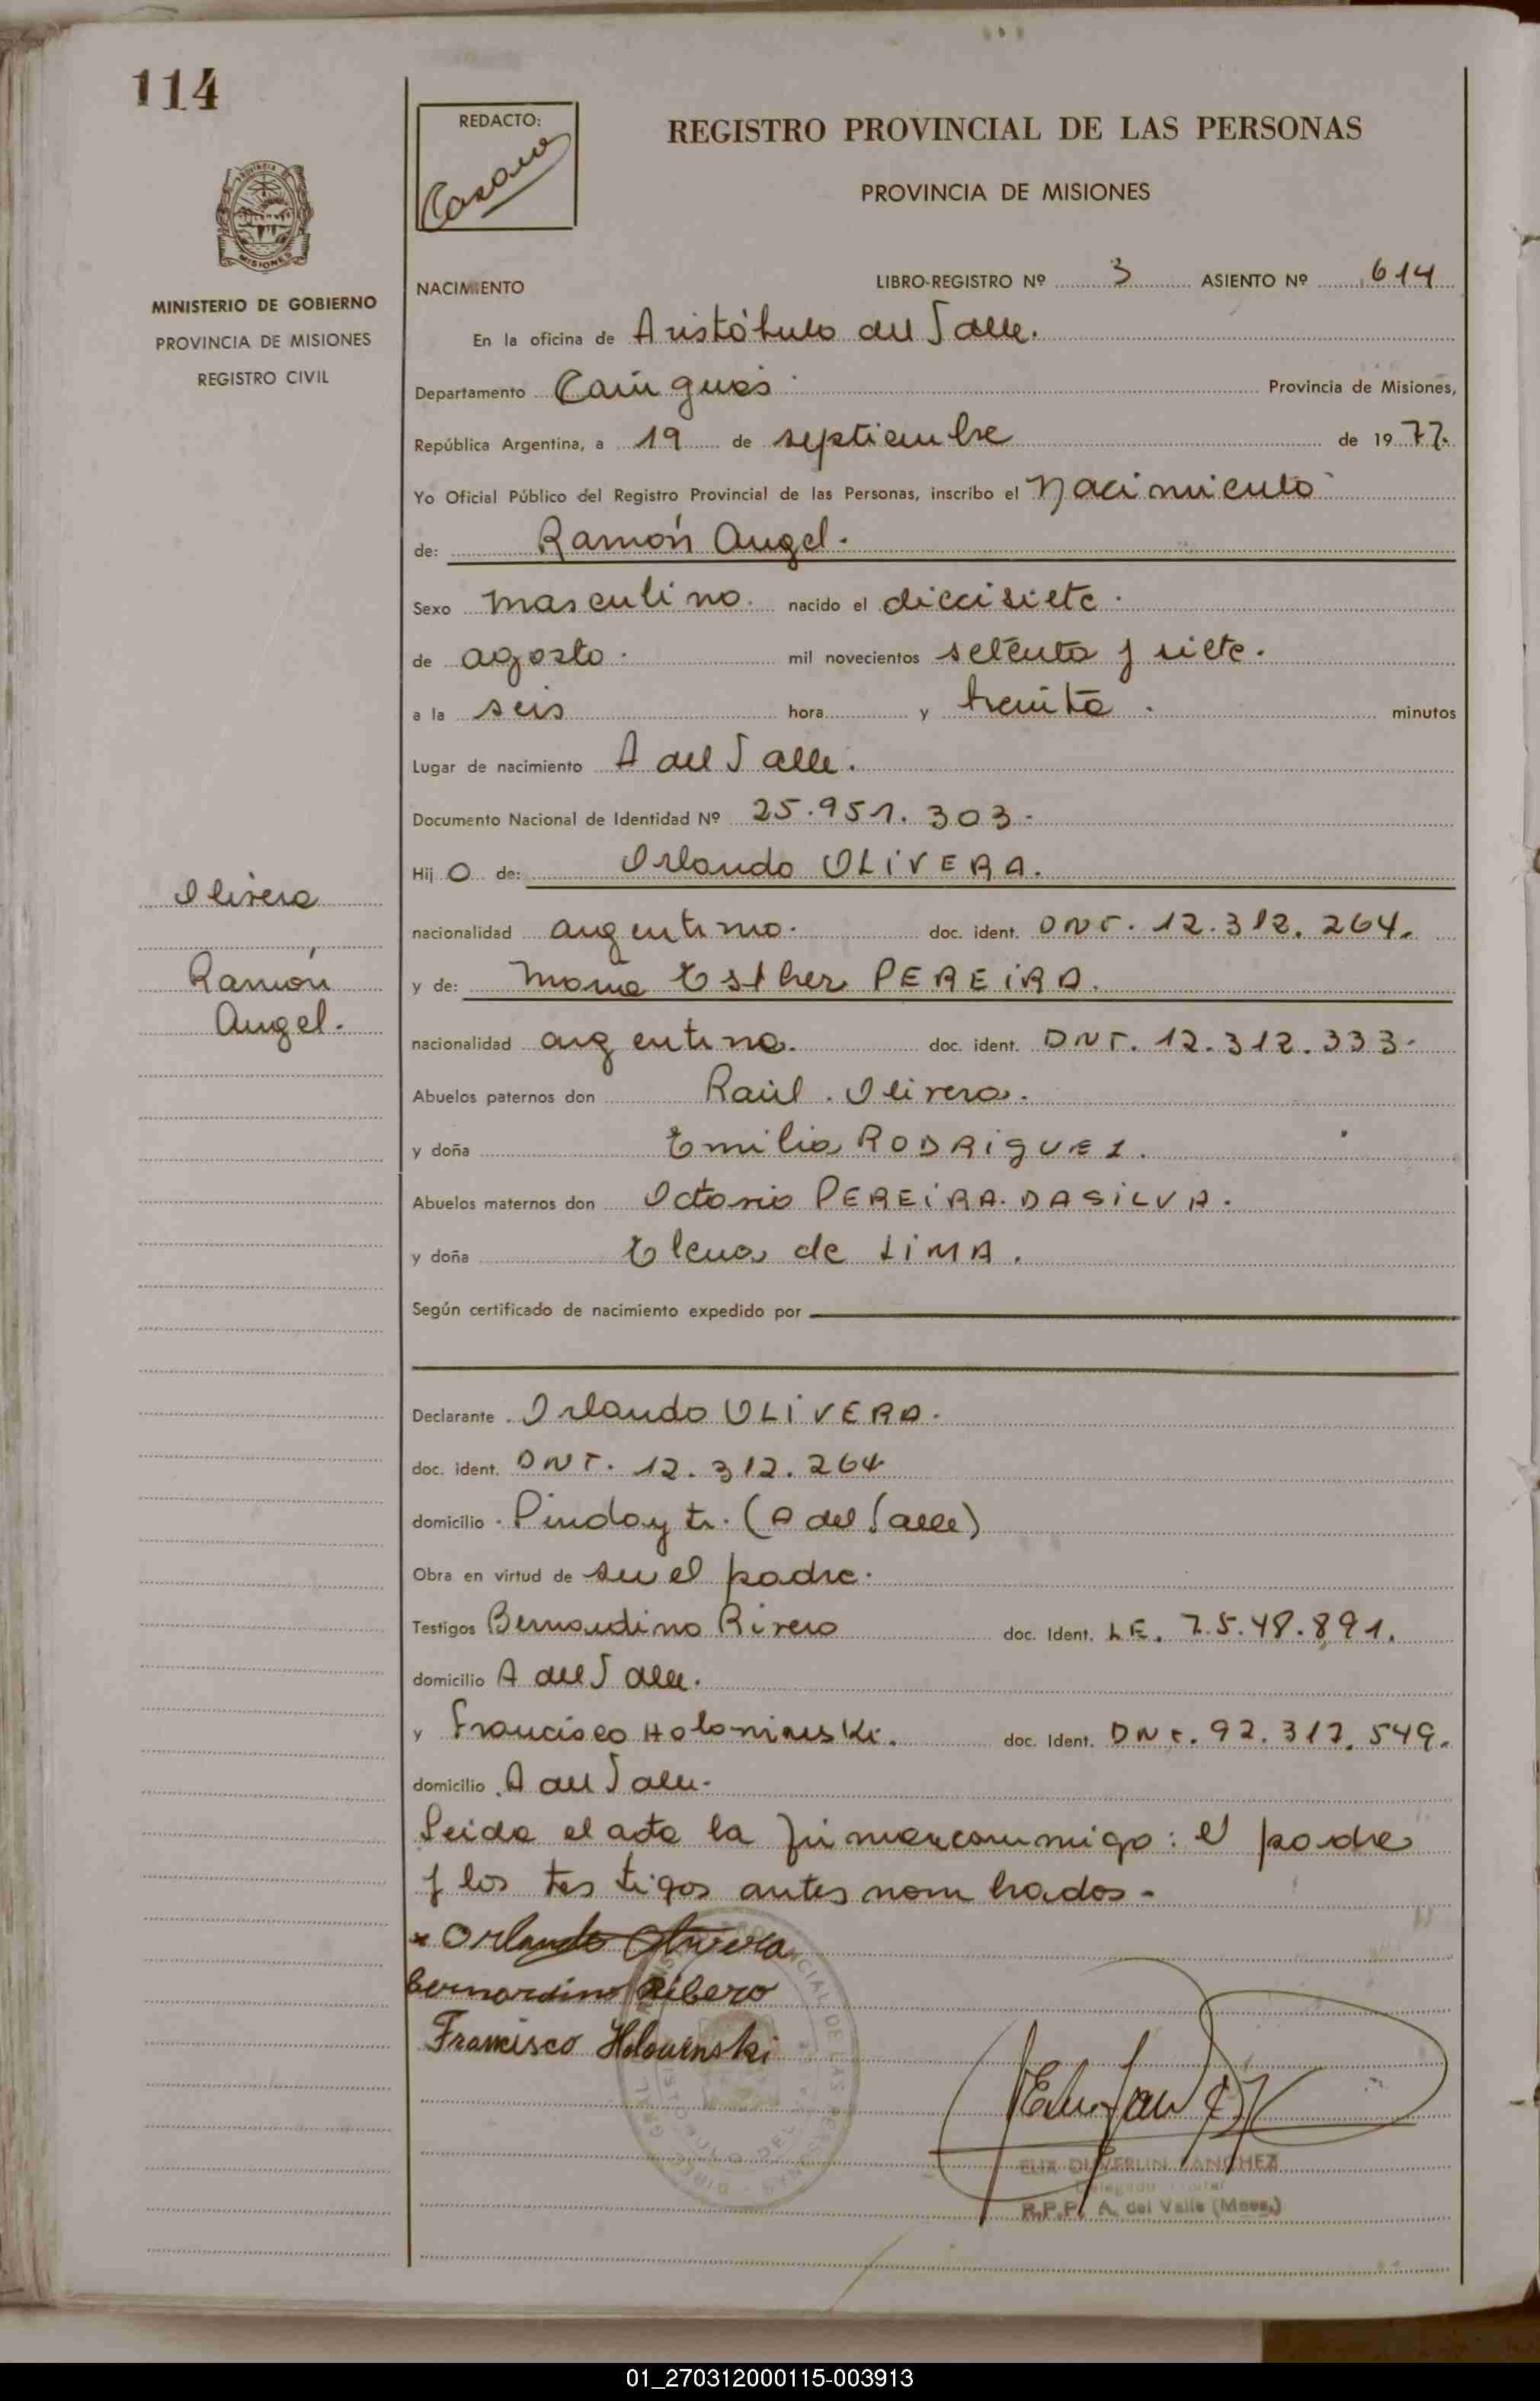 114
REDACTO:
REGISTRO PROVINCIAL DE LAS PERSONAS
PROVINCIA DE MISIONES
MISIONES
MINISTERIO DE GOBIERNO
PROVINCIA DE MISIONES
REGISTRO CIVIL
NACIMIENTO LIBRO-REGISTRO Nº 3 ASIENTO Nº 614
En la oficina de Aristóbulo del Valle.
Departamento Cainguás Provincia de Misiones,
República Argentina, a 19 de septiembre de 1977.
Yo Oficial Público del Registro Provincial de las Personas, inscribo el Nacimiento
de: Ramón Angel.
Sexo masculino. nacido el diecisiete.
de agosto. mil novecientos setenta y siete.
a la seis hora y treinta. minutos
Lugar de nacimiento A del Valle.
Documento Nacional de Identidad Nº 25.951.303-
Hij o de: Orlando OLIVERA.
nacionalidad argentino. doc. ident. DNI. 12.312.264.
y de: Maria Esther PEREIRA.
nacionalidad argentina. doc. ident. DNI. 12.312.333-
Abuelos paternos don Raúl Olivera.
y doña Emilia RODRIGUEZ.
Abuelos maternos don Octavio PEREIRA DASILVA.
y doña Elena de LIMA.
Según certificado de nacimiento expedido por
Olivera
Ramón
Angel.
Declarante Orlando OLIVERA.
doc. ident. DNI. 12.312.264
domicilio Pindayti. (A del Valle)
Obra en virtud de ser el padre.
Testigos Bernardino Rivero doc. Ident. LE. 7.5.48.891.
domicilio A del Valle.
y Francisco doc. Ident. DNI. 92.317.549.
domicilio A del Valle.
Leida el acta la firman conmigo: el padre
y los testigos antes nombrados-
x Orlando Olivera
Bernardino Ribero
Francisco
SANCHEZ
R.P.P. A. del Valle (Mnes.)
01_270312000115-003913